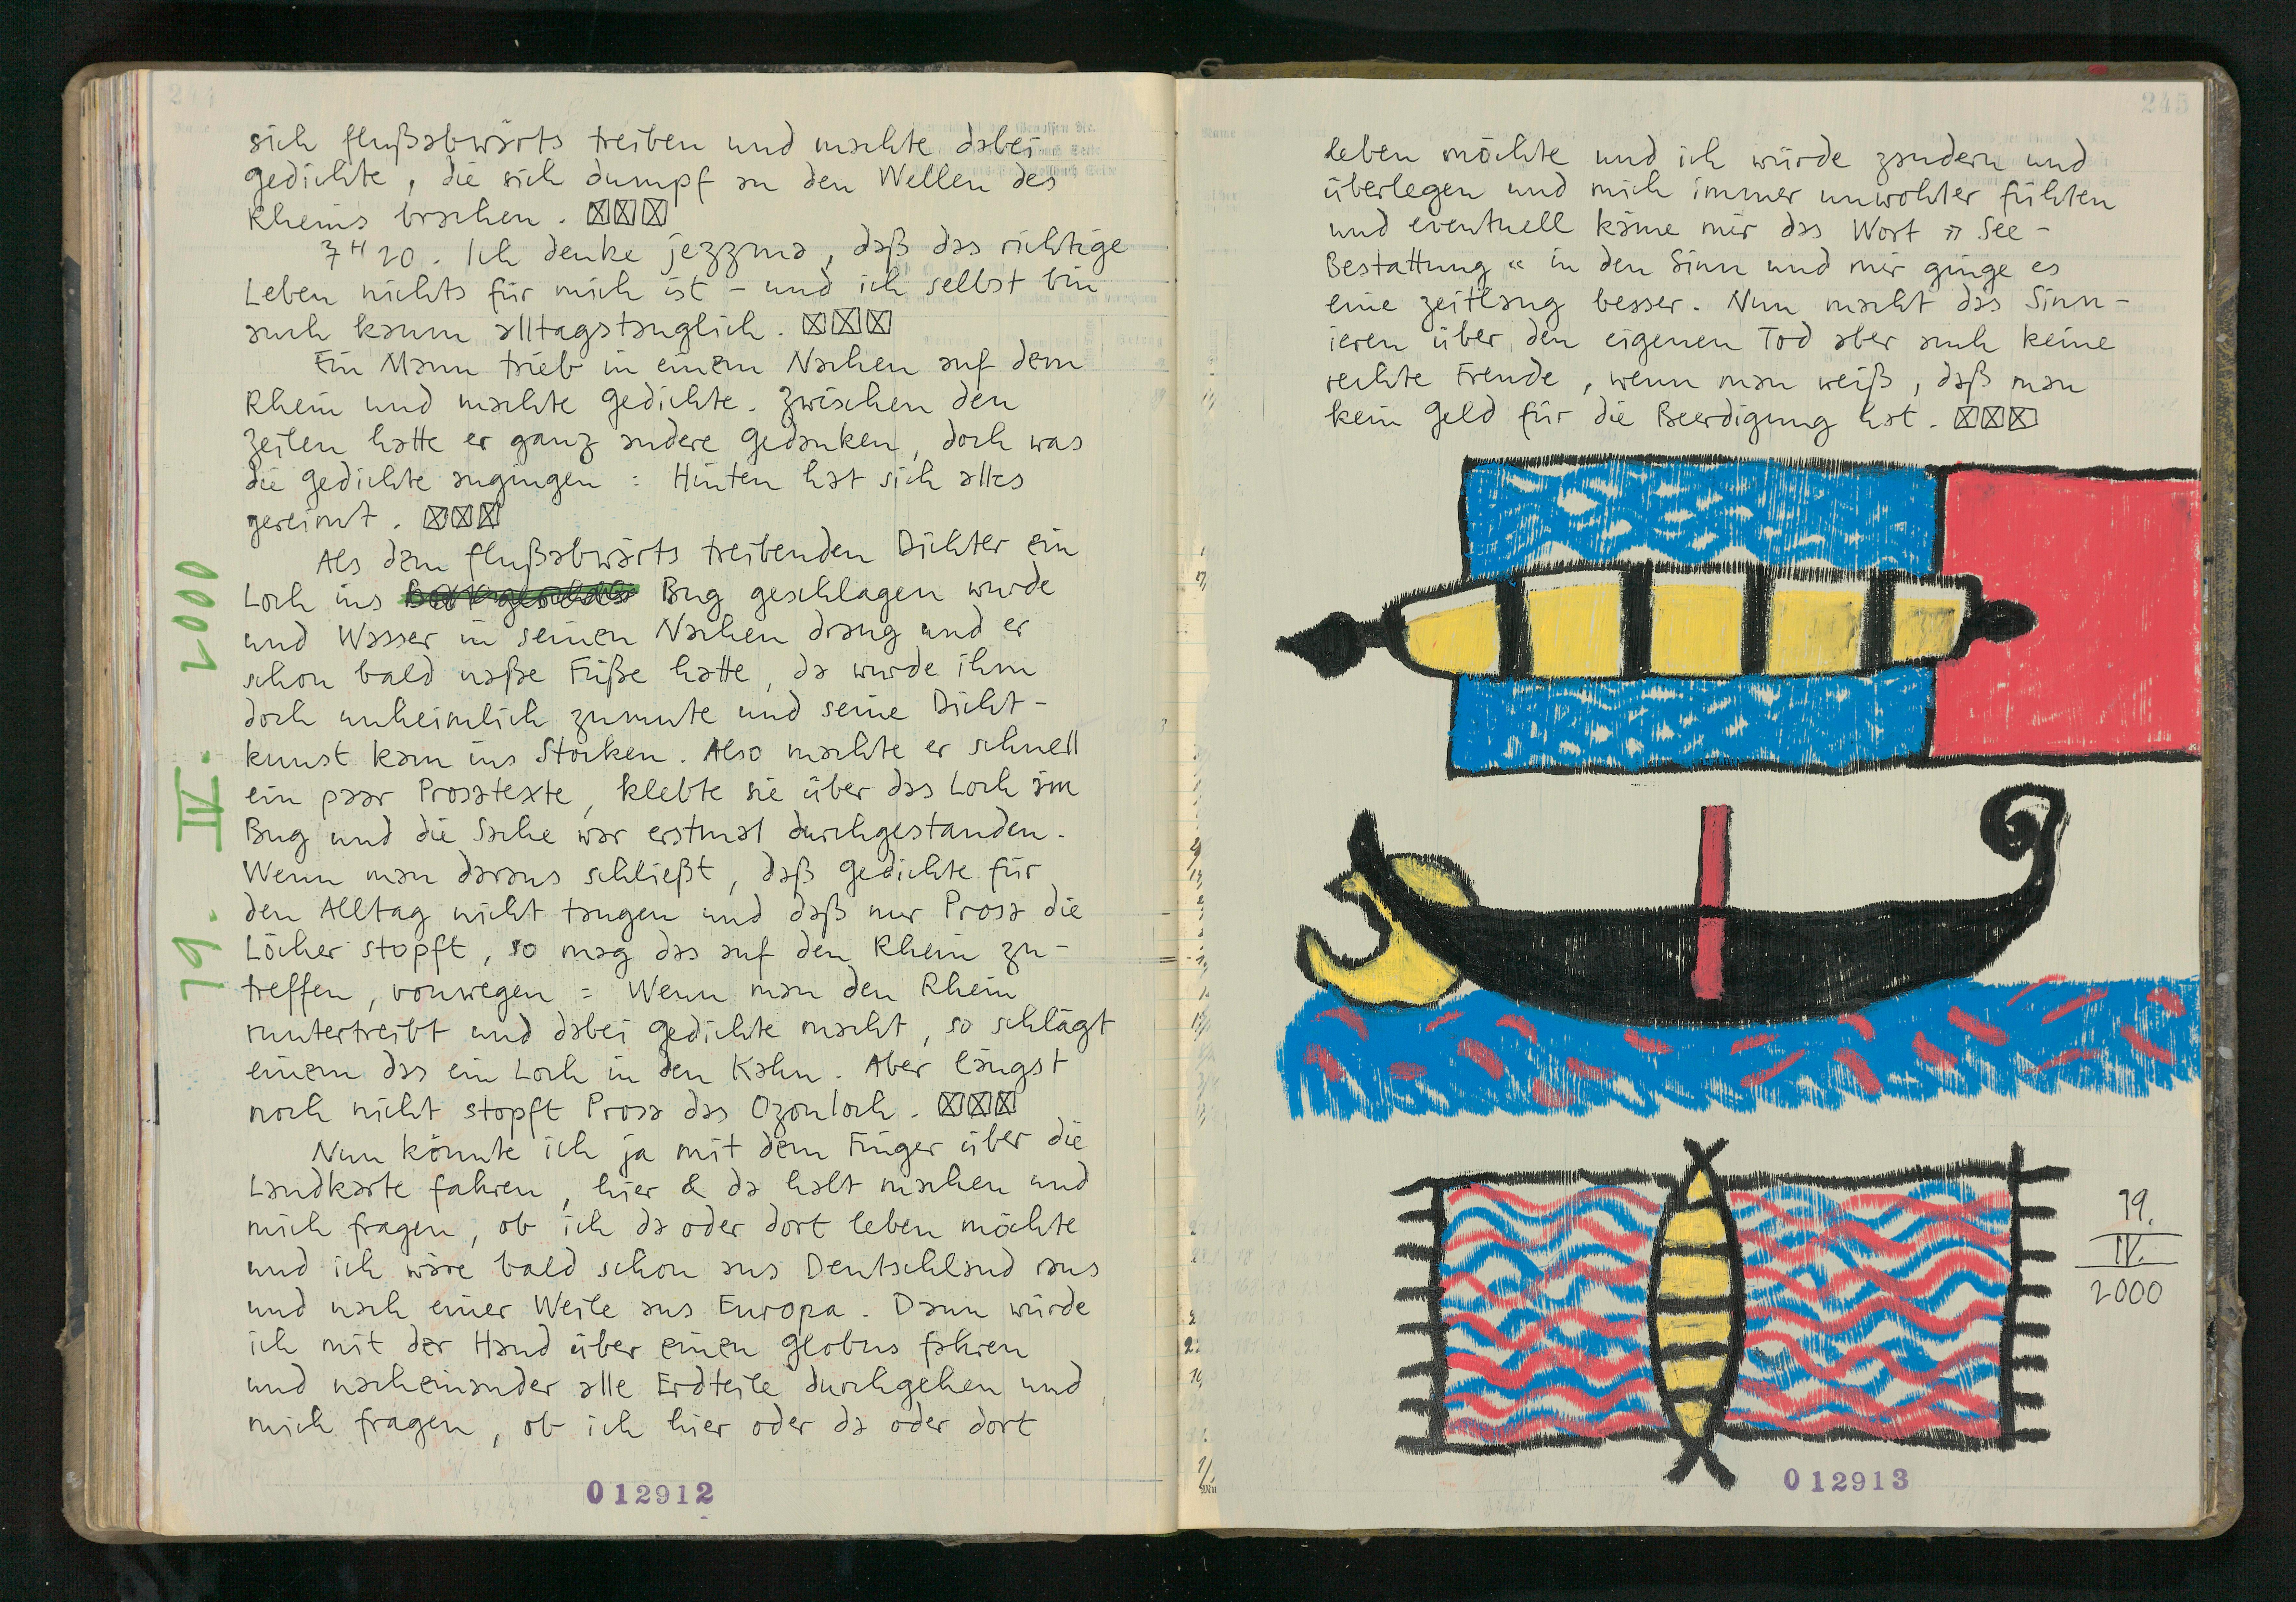 sich flußabwärts treiben und machte dabei
Gedichte, die sich dumpf an den Wellen des
Rheins brachen. ☒☒☒
7H20. Ich denke jezzma, daß das richtige
Leben nichts für mich ist – und ich selbst bin
auch kaum alltagstauglich. ☒☒☒
Ein Mann trieb in einem Nachen auf dem
Rhein und machte Gedichte. Zwischen den
Zeilen hatte er ganz andere Gedanken, doch was
die Gedichte angingen: Hinten hat sich alles
gereimt. ☒☒☒
Als dem flußabwärts treibenden Dichter ein
Loch ins Bug geschlagen wurde
und Wasser in seinen Nachen drang und er
schon bald naße Füße hatte, da wurde ihm
doch unheimlich zumute und seine Dicht-
kunst kam ins Stocken. Also machte er schnell
ein paar Prosatexte, klebte sie über das Loch im
Bug und die Sache war erstmal durchgestanden.
Wenn man daraus schließt, daß Gedichte für
den Alltag nicht taugen und daß nur Prosa die
Löcher stopft, so mag das auf den Rhein zu-
treffen, vonwegen: Wenn man den Rhein
runtertreibt und dabei Gedichte macht, so schlägt
einem das ein Loch in den Kahn. Aber längst
noch nicht stopft Prosa das Ozonloch. ☒☒☒
Nun könnte ich ja mit dem Finger über die
Landkarte fahren, hier & da halt machen und
mich fragen, ob ich da oder dort leben möchte
und ich wäre bald schon aus Deutschland raus
und nach einer Weile aus Europa. Dann würde
ich mit der Hand über einen Globus fahren
und nacheinander alle Erdteile durchgehen und
mich fragen, ob ich hier oder da oder dort
19. IV. 2000
012912
245
leben möchte und ich würde zaudern und
überlegen und mich immer unwohler fühlen
und eventuell käme mir das Wort »See-
Bestattung« in den Sinn und mir ginge es
eine zeitlang besser. Nun macht das Sinn-
ieren über den eigenen Tod aber auch keine
rechte Freude, wenn man weiß, daß man
kein Geld für die Beerdigung hat. ☒☒☒
19.
IV.
2000
012913